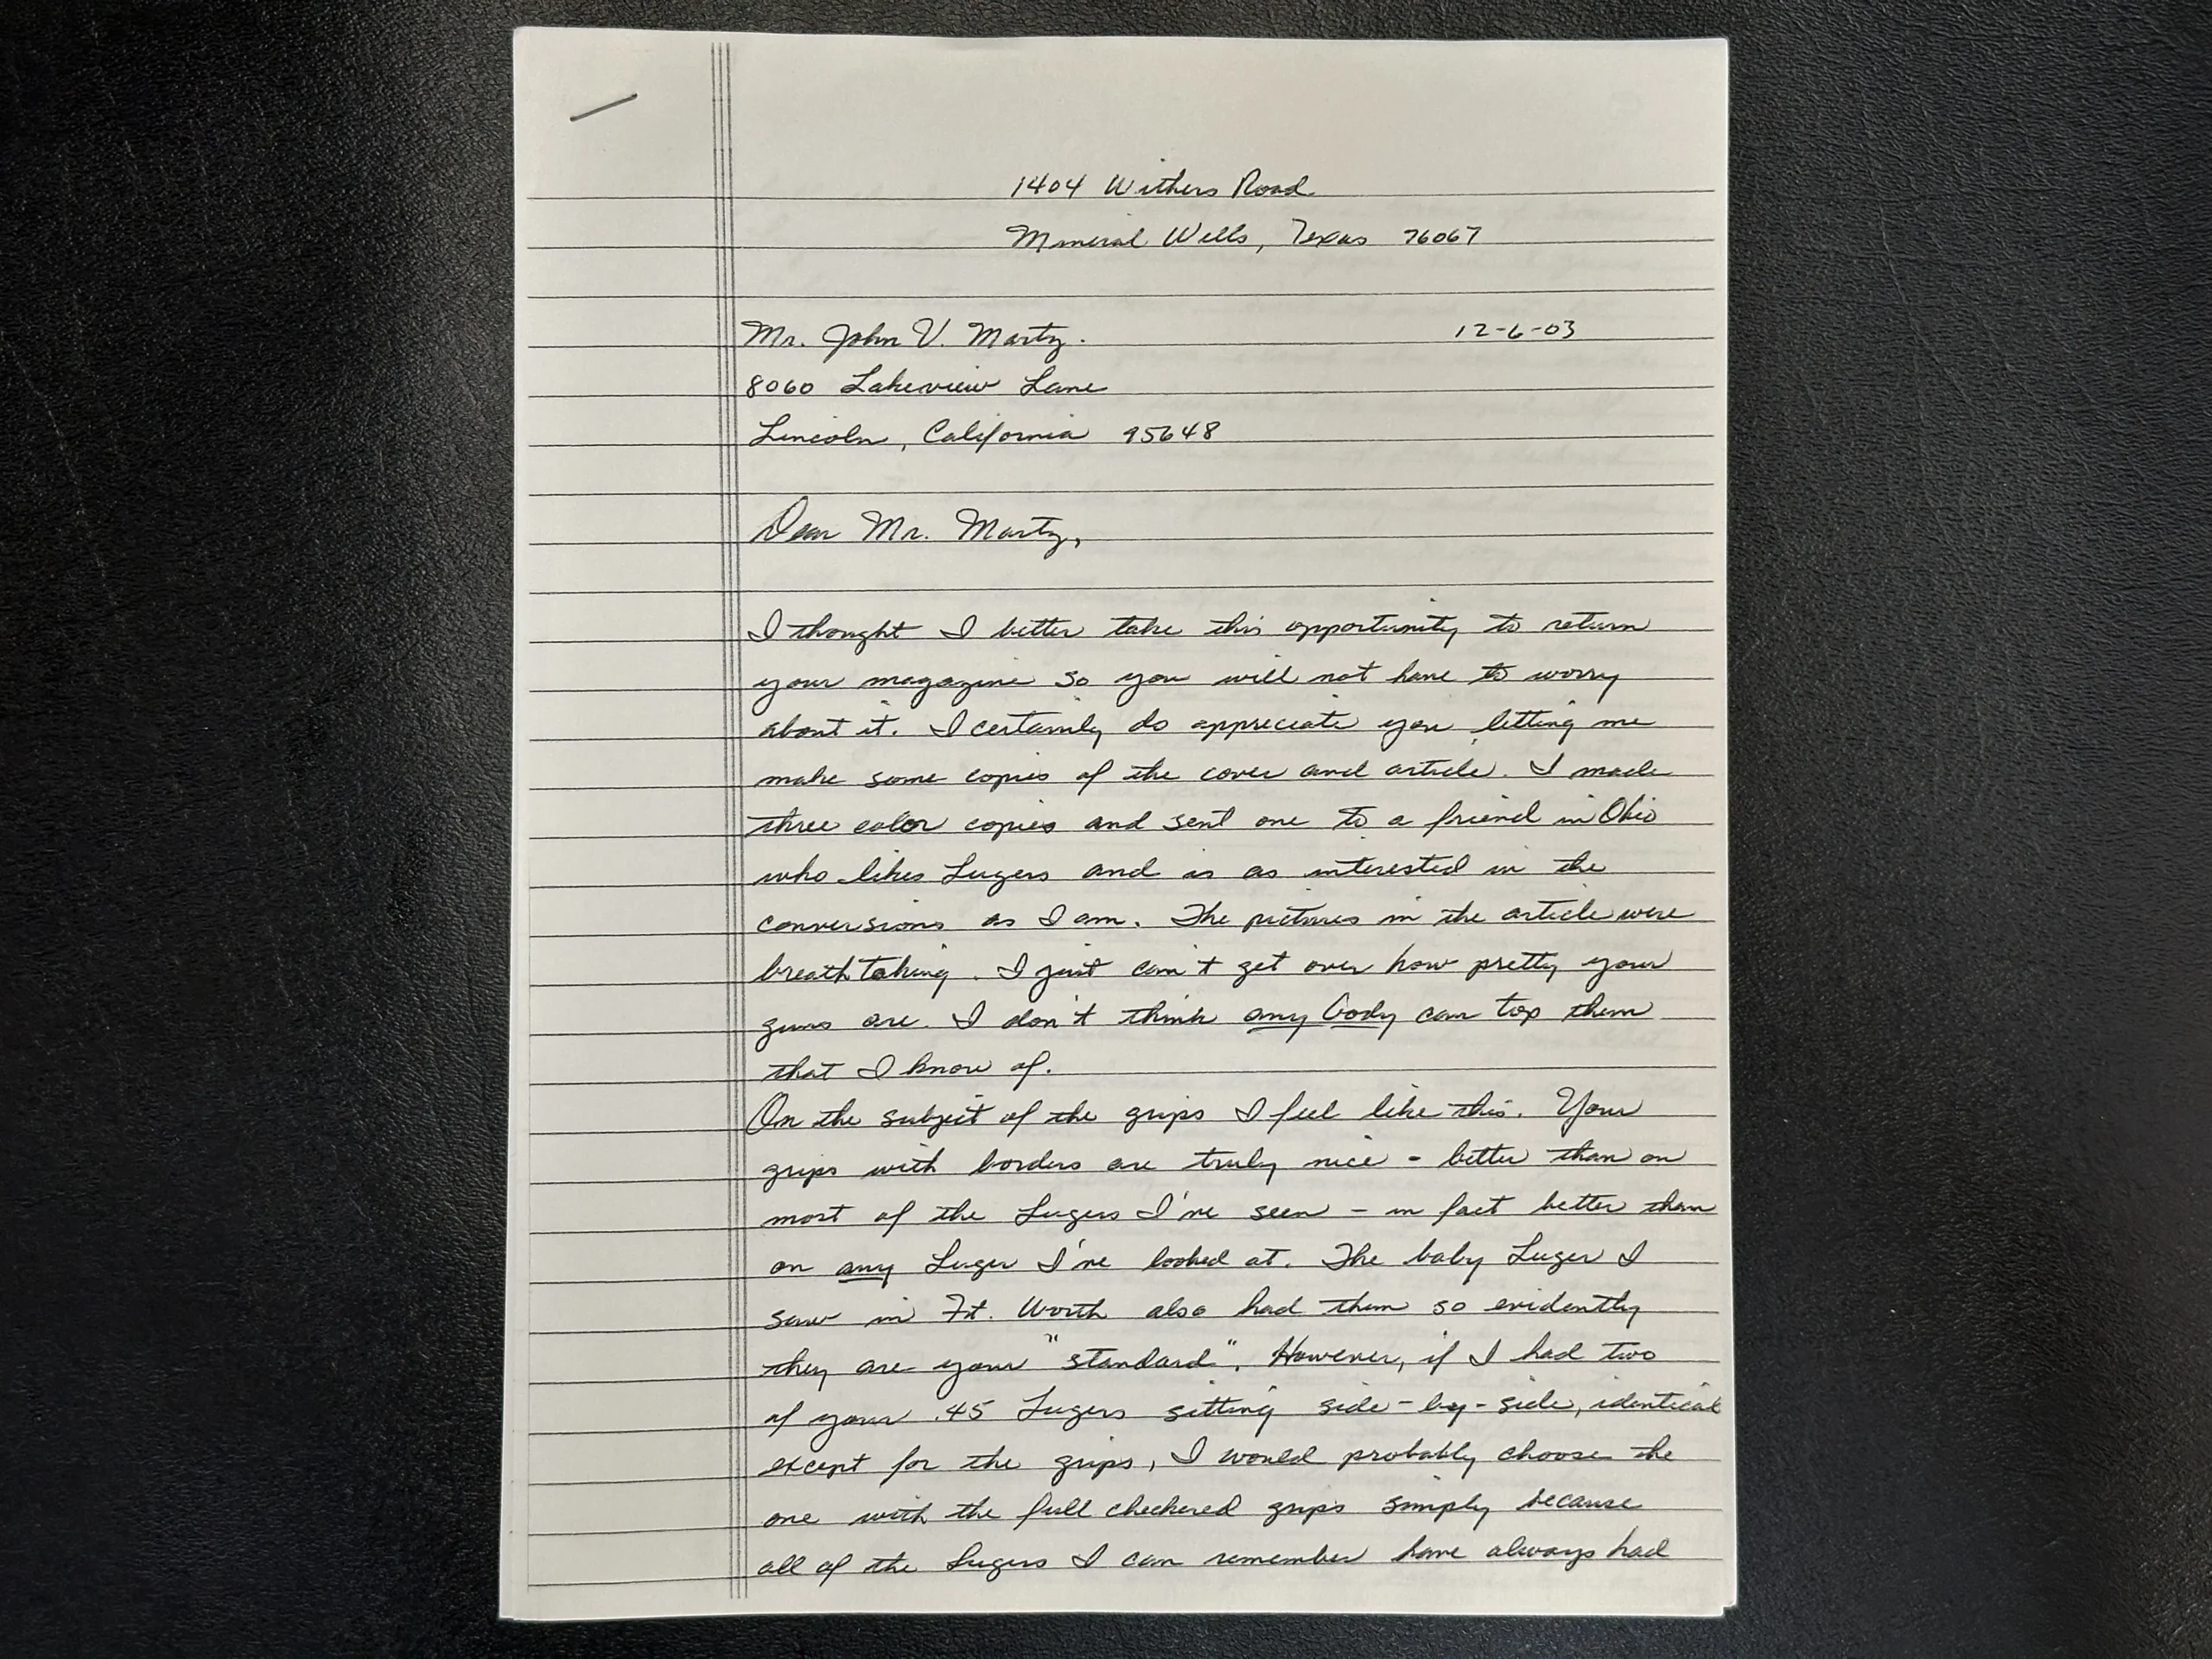 1404 Withers Road
Mineral Wells, Texas 76067
Mr. John V. Martz.
12-6-03
8060 Lakeview Lane
Lincoln, California 95648
Dear Mr. Martz,
I thought I better take this opportunity to return
your magazine so you will not have to worry
about it. I certainly do appreciate you letting me
make some copies of the cover and article. I made
three color copies and sent one to a friend in Ohio
who likes Lugers and is as interested in the
conversions as I am. The pictures in the article were
breathtaking. I just can't get over how pretty your
guns are. I don't think any body can top them
that I know of.
On the subject of the grips I feel like this. Your
grips with borders are truly nice - better than on
most of the Lugers I've seen - in fact better than
on any Luger I've looked at. The baby Luger I
saw in Ft. Worth also had them so evidently
they are your "standard". However, if I had two
of your .45 Lugers sitting side-by-side, identical
except for the grips, I would probably choose the
one with the full checkered grips simply because
all of the Lugers I can remember have always had